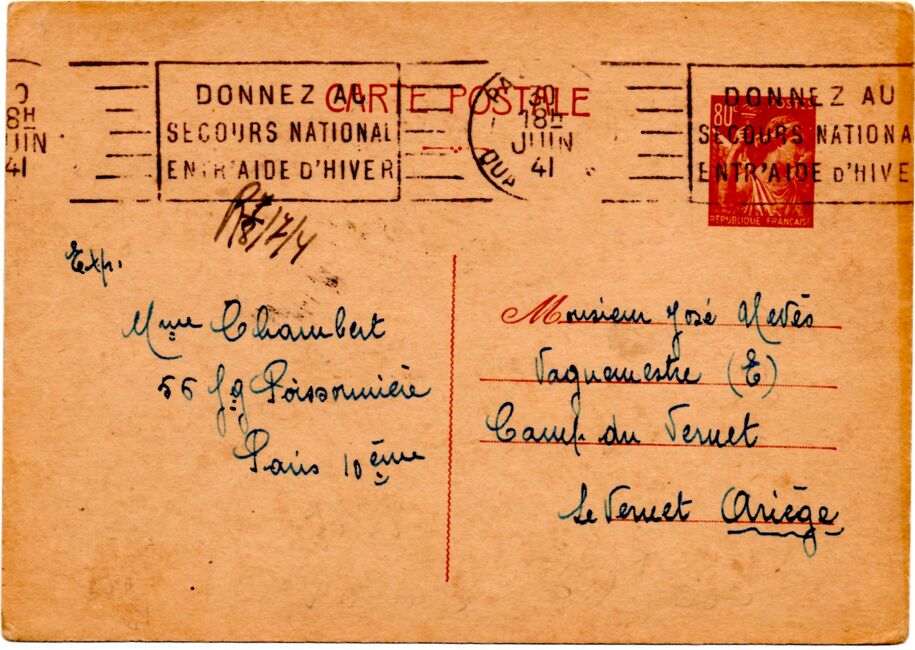 CARTE POSTALE
DONNEZ AU
SECOURS NATIONAL
ENTR'AIDE D'HIVER
30
18H
JUIN
41
DONNEZ AU
SECOURS NATIONA
ENTR'AIDE D'HIVE
0
8H
UIN
41
80c
POSTES
RÉPUBLIQUE FRANÇAISE
Exp.
Mme Chambert
56 fg Poissonnière
Paris 10ème
Monsieur José Nevès
Vaguemestre (E)
Camp du Vernet
Le Vernet Ariège